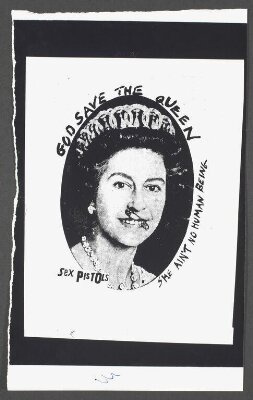 GOD SAVE THE QUEEN
SHE AIN'T NO HUMAN BEING
SEX PISTOLS